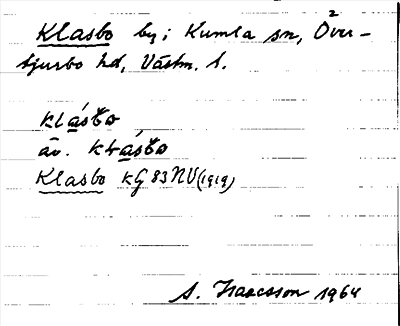 Klasbo by i Kumla sn, Över-
tjurbo hd, Västm. l.
klásbo
äv. klásbo
Klasbo KG 83 NV (1919)
S. Isaacsson 1964